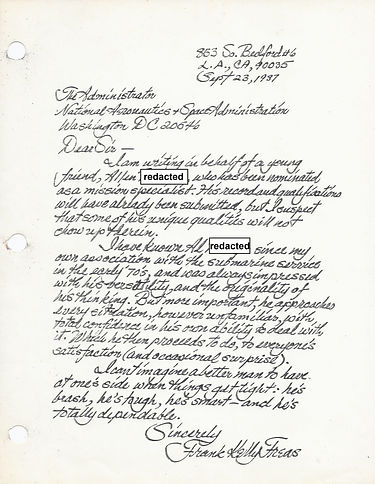 853 So. Bedford #6
L.A., CA, 90035
Sept 23, 1987
The Administrator
National Aeronautics & Space Administration
Washington DC 20546
Dear Sir —
I am writing in behalf of a young
friend, Allen redacted, who has been nominated
as a mission specialist. His record and qualifications
will have already been submitted, but I suspect
that some of his unique qualities will not
show up therein.
I have known Al redacted since my
own association with the submarine service
in the early 70's, and was always impressed
with his versatility, and the originality of
his thinking. But more important, he approaches
every situation, however unfamiliar, with
total confidence in his own ability to deal with
it. Which he then proceeds to do, to everyone's
satisfaction (and occasional surprise).
I can't imagine a better man to have
at one's side when things get tight: he's
brash, he's tough, he's smart — and he's
totally dependable.
Sincerely
Frank Kelly Freas